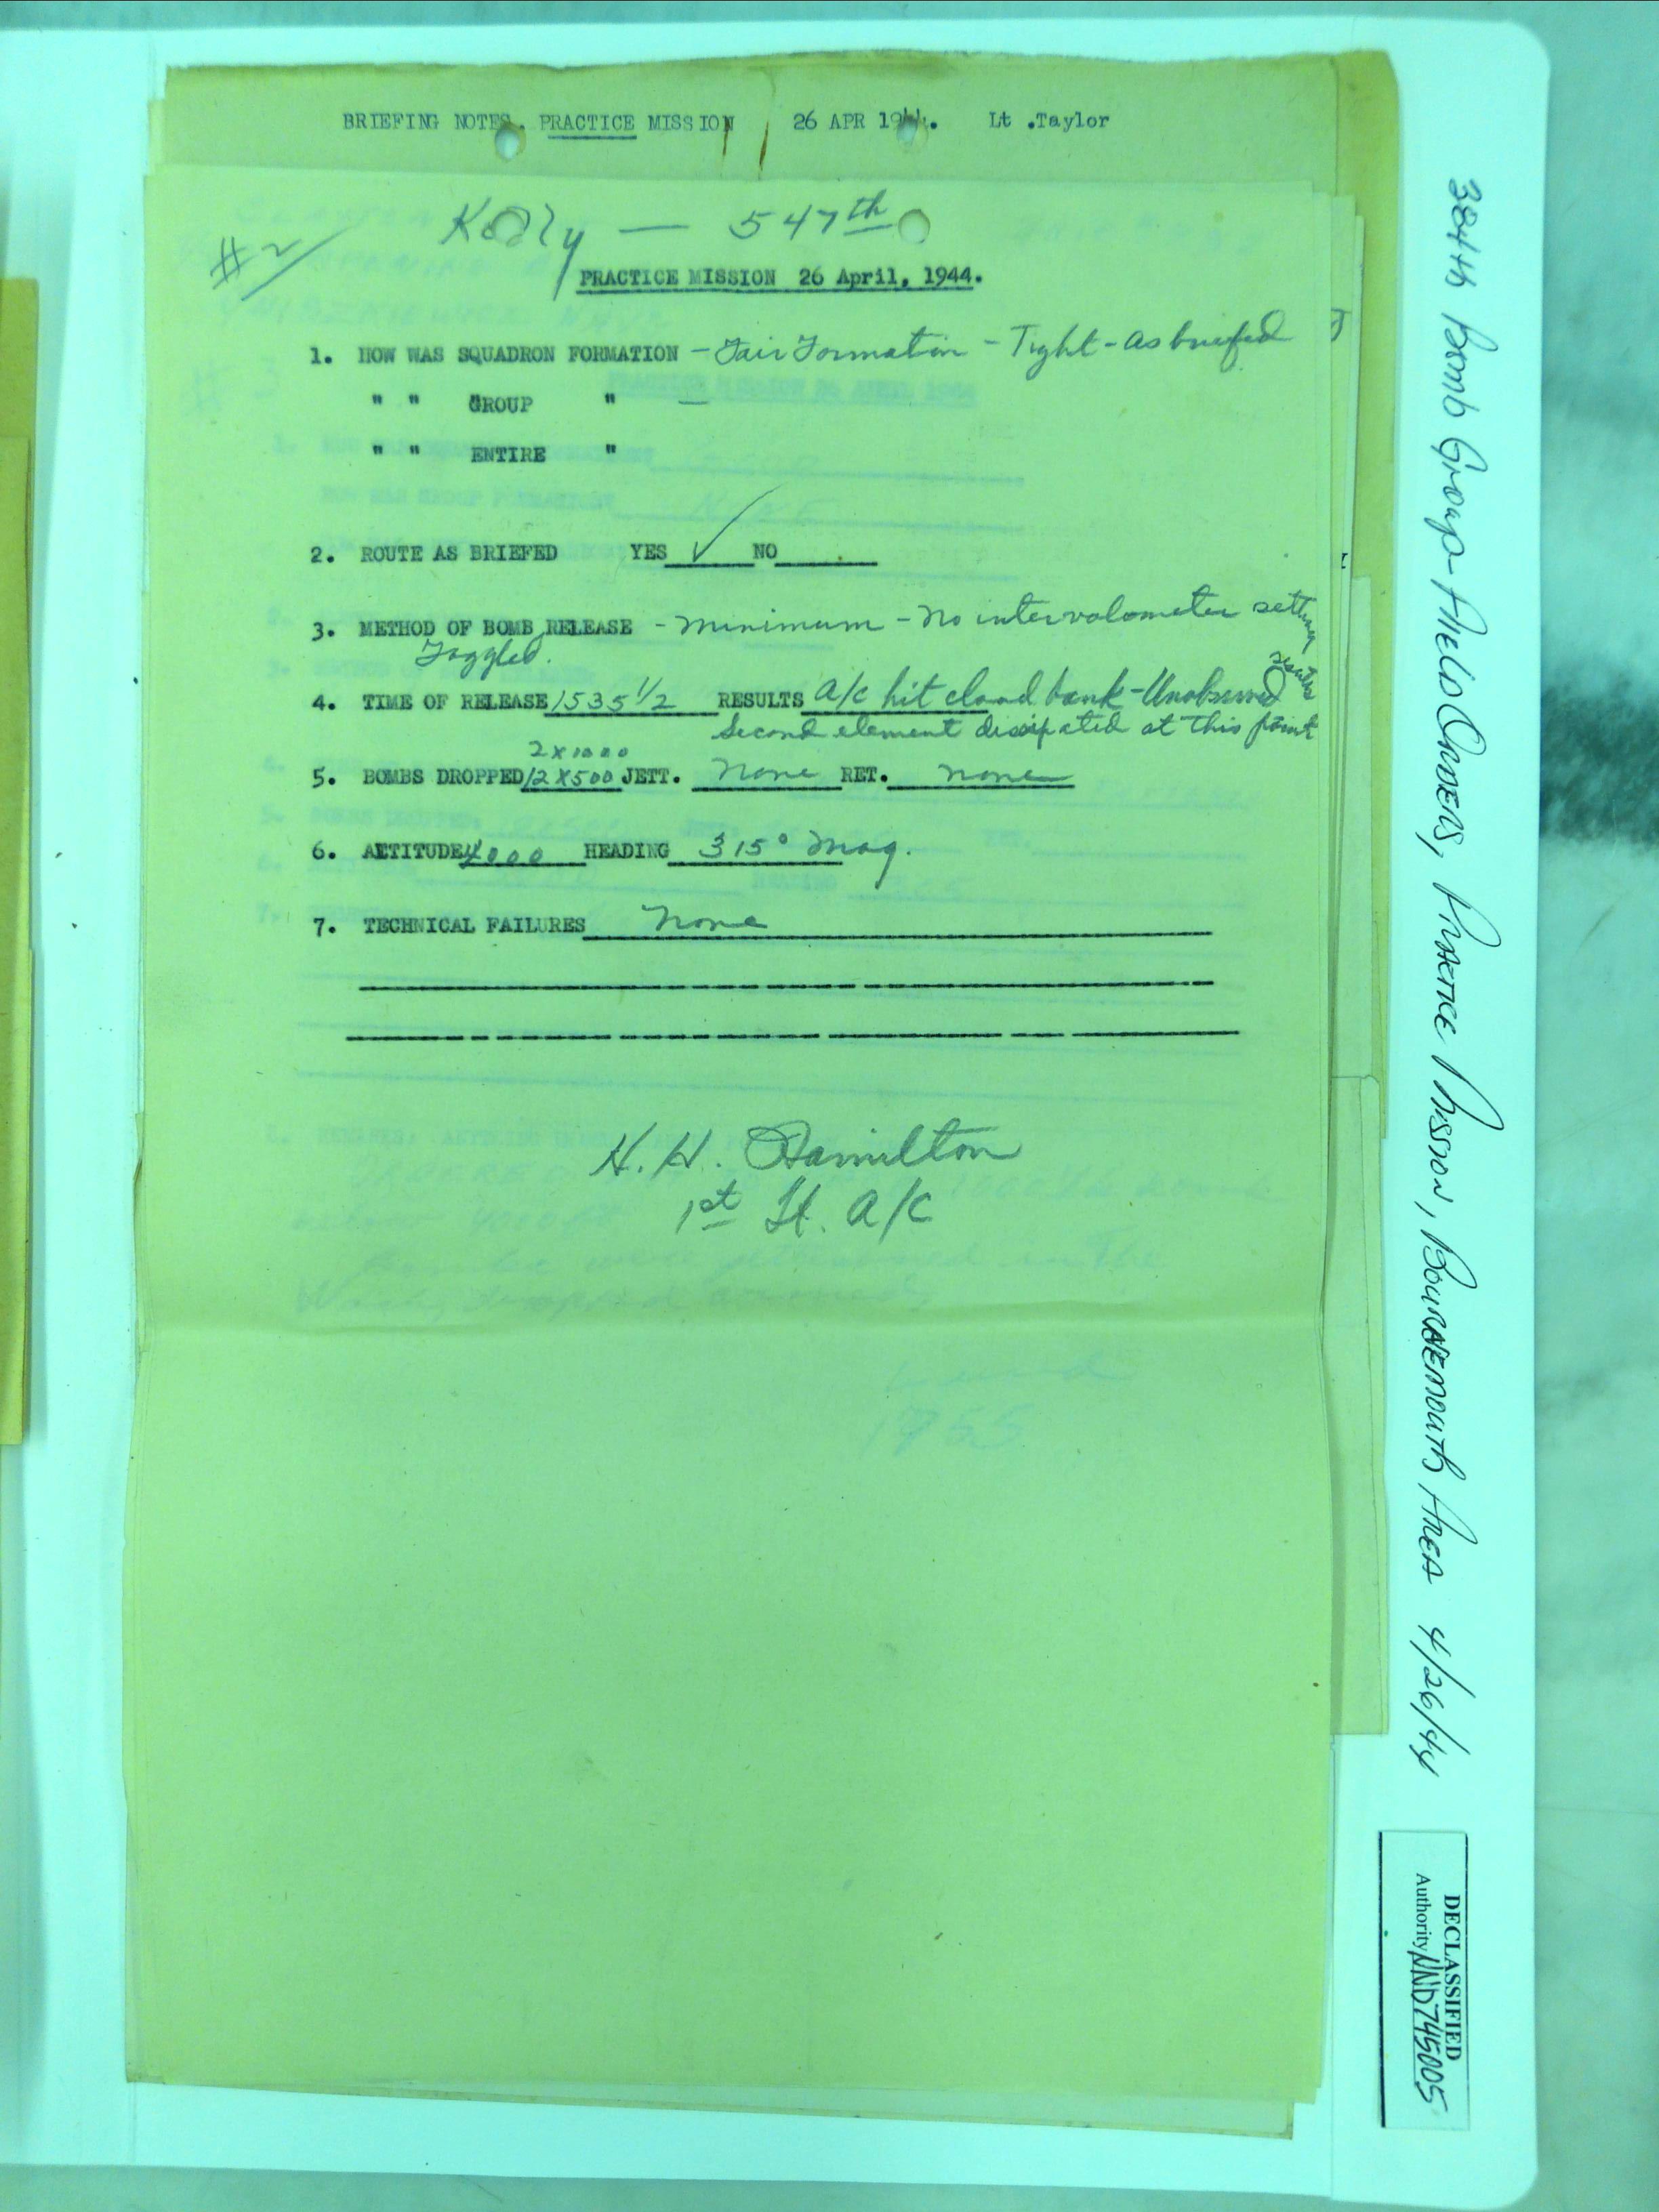 BRIEFING NOTES. PRACTICE MISSION 26 APR 1944. Lt .Taylor
#2
Kelly — 547th
PRACTICE MISSION 26 April, 1944.
1. HOW WAS SQUADRON FORMATION - Fair Formation - Tight - as briefed
" " GROUP " —
" " ENTIRE "
2. ROUTE AS BRIEFED YES ✓ NO
3. METHOD OF BOMB RELEASE - minimum - no intervalometer setting
Toggled.
4. TIME OF RELEASE 1535 1/2 RESULTS A/C hit cloud bank - Unobserved results
Second element dissipated at this point
2 x 1000
5. BOMBS DROPPED 12 X 500 JETT. none RET. none
6. ALTITUDE 4000 HEADING 315° Mag.
7. TECHNICAL FAILURES none
H. H. Hamilton
1st Lt. A/C
384th Bomb Group - Field Orders, Practice Mission, Bournemouth Area 4/26/44
DECLASSIFIED
Authority NND745005